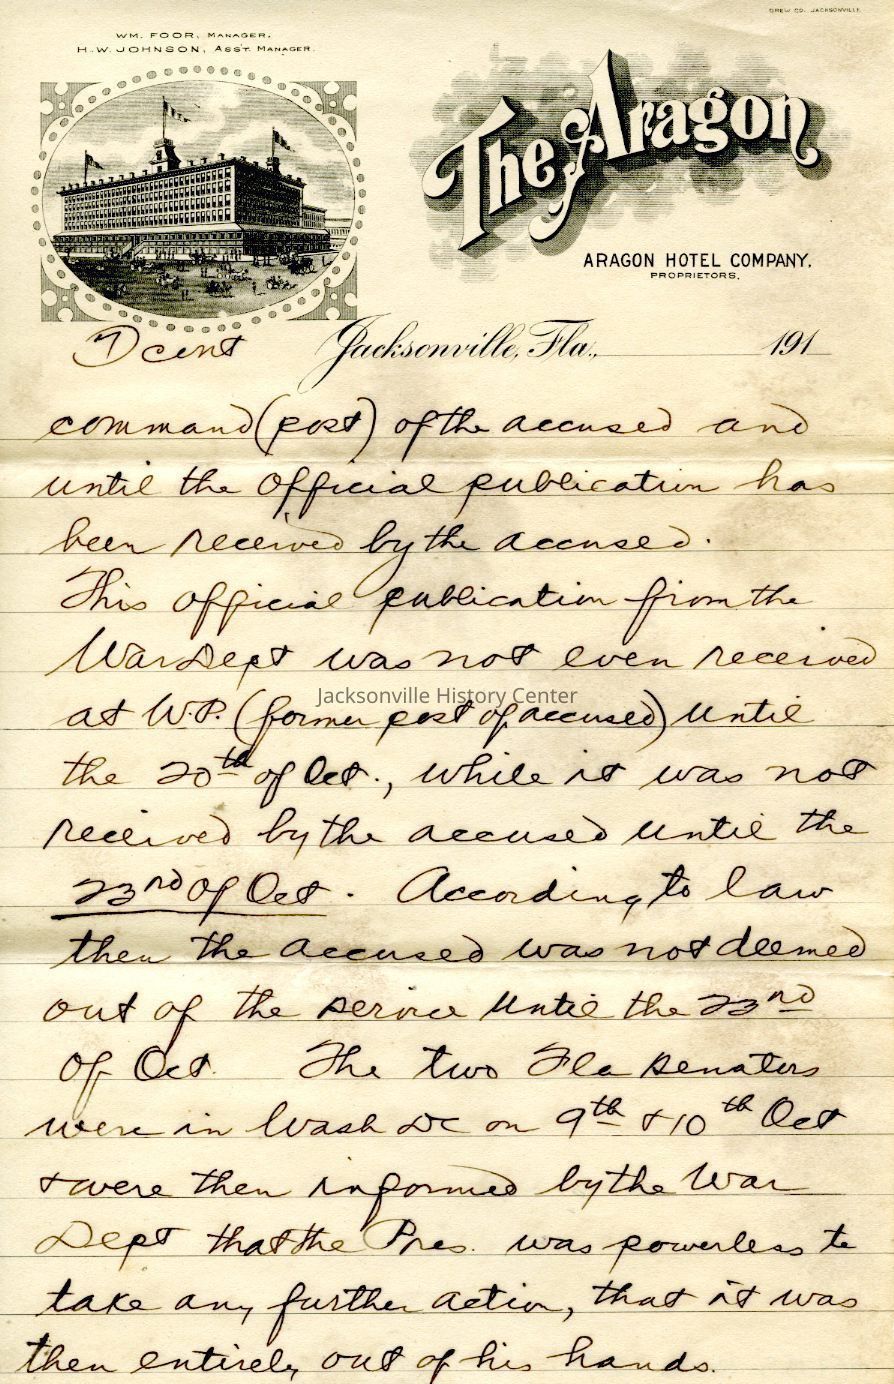 DREW CO. JACKSONVILLE
WM. FOOR, MANAGER.
H.W. JOHNSON, ASST. MANAGER.
The Aragon
ARAGON HOTEL COMPANY.
PROPRIETORS.
Jacksonville, Fla., 191
command (post) of the accused and
until the official publication has
been received by the accused.
This official publication from the
War Dept was not even received
Jacksonville History Center
at W.P. (former post of accused) until
the 20th of Oct., while it was not
received by the accused until the
23rd of Oct. According to law
then the accused was not deemed
out of the service until the 23rd
of Oct. The two Fla senators
were in Wash DC on 9th & 10th Oct
& were then informed by the War
Dept that the Pres. was powerless to
take any further action, that it was
then entirely out of his hands.